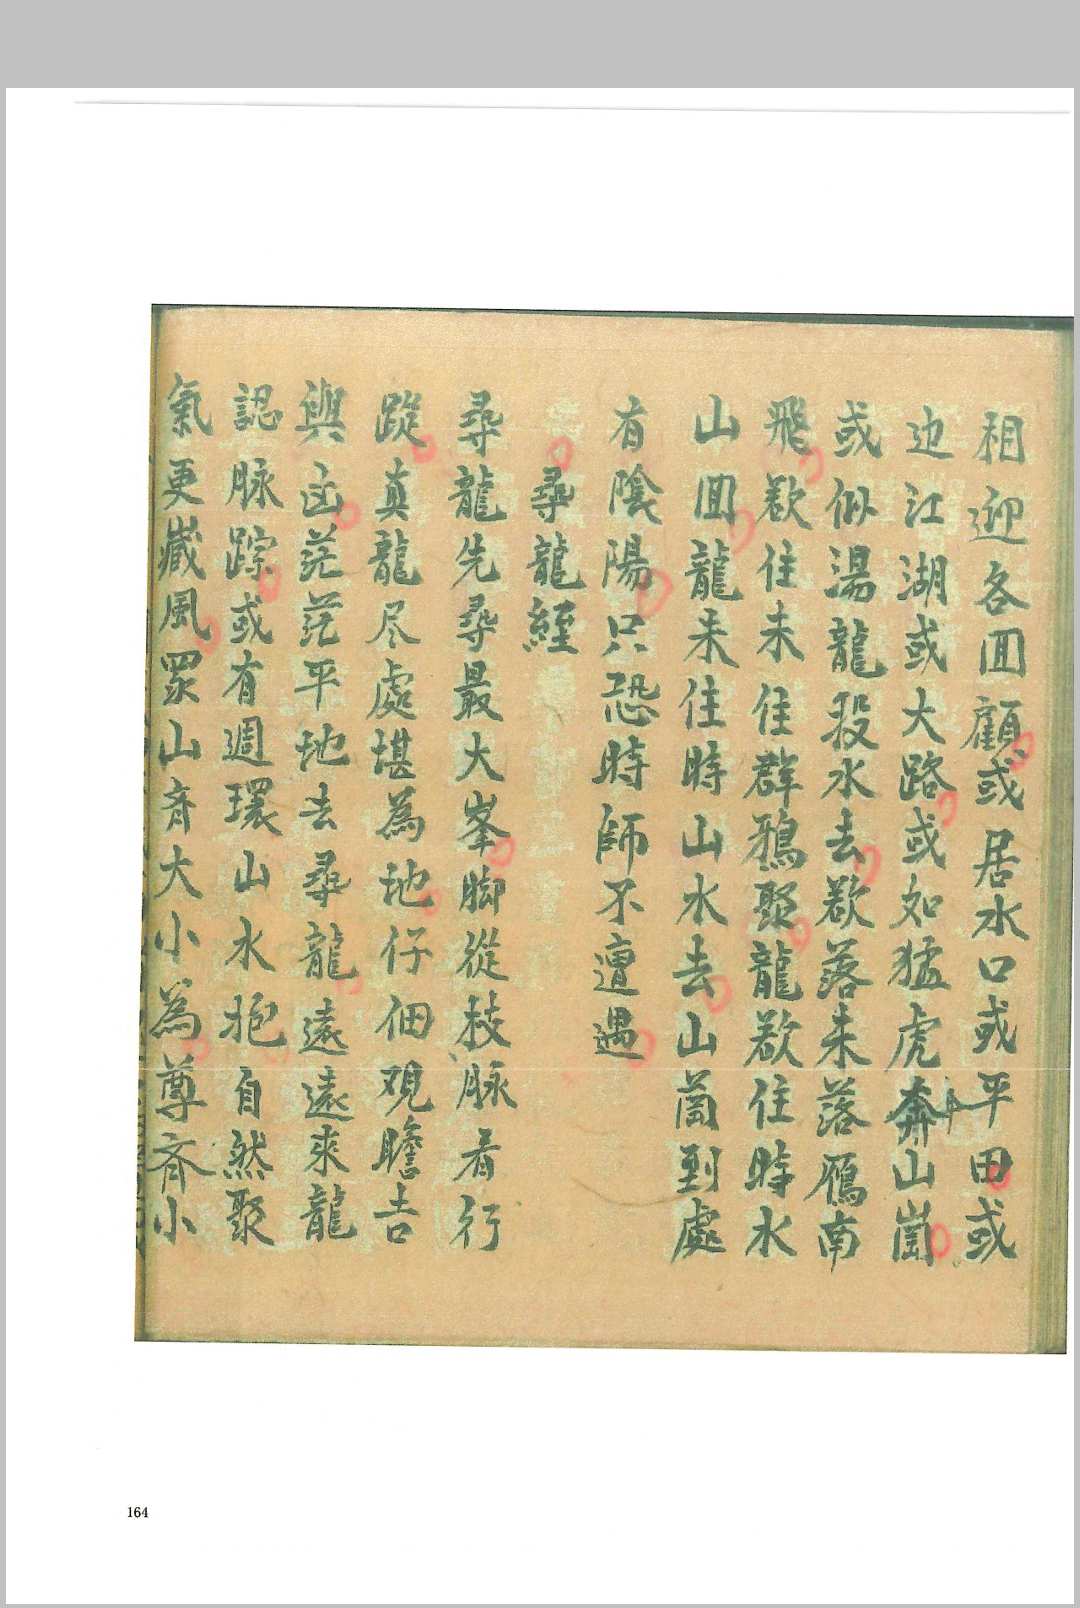 相迎各囬顧或居水口或平田或
边江湖或大路或如猛虎奔山崗
或似湯龍投水去歇落未落鴈南
飛歇住未住群鴉聚龍歇住時水
山囬龍未住時山水去山崗到處
有陰陽只恐時師不遭遇
尋龍經
尋龍先尋最大峯脚從枝脉看行
踪真龍尽處堪為地仔细观瞻吉
與凶茫茫平地去尋龍遠遠來龍
認脉踪或有週環山水抱自然聚
氣更藏風眾山齊大小為尊齊小
164